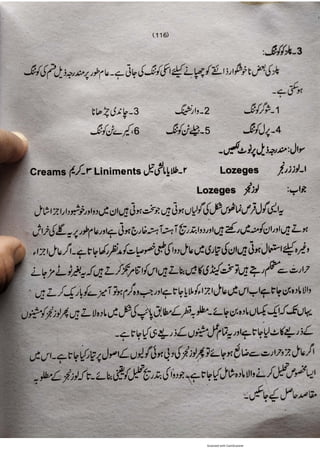 (116)
3۔ پلز کی کوٹنگ:
پلز کی بعض ناخوشگوار ذائقے کو چھپانے کیلئے اسکی کوٹنگ کی جاتی ہے۔ عام طور پر مندرجہ ذیل قسم کی کوٹنگ
ہو سکتی ہے۔
1۔ شوگر کوٹنگ 2۔ وارنشنگ 3۔ چاندی چڑھانا
4۔ پرل کوٹنگ 5۔ جیلے ٹن کوٹنگ 6۔ کیرے ٹن کوٹنگ
سوال: مندرجہ ذیل پر نوٹ لکھیں۔
۱۔ لوزنجز Lozeges ۲۔ طلا یا مالشی تیل Liniments ۳۔ کریم Creams
جواب: لوزنجز Lozeges
یہ ایسی گول قرص نما ٹھوس شکل کی گولیاں ہوتی ہیں جو سخت ہوتی ہیں ان میں دوا اور خوشبودار اجزا شامل
ہوتے ہیں اور ان کو منہ میں رکھتے ہیں اور دوا بتدریج آہستہ آہستہ خارج ہوتی ہے اور عام طور پر یہ گلے کی خراش
وغیرہ کیلئے استعمال ہوتی ہیں ان کی تیاری میں عامل دوا کی طبعی خصوصیات کو مدنظر رکھا جاتا ہے۔ اگر عامل اجزاء
حرارت سے مستحکم رہتے ہیں تو سخت کینڈی کا بیس بناتے ہیں اس کو اتنا گرم کرتے ہیں کہ یہ بغیر ٹوٹے مڑ جانے
والا مادہ بن جاتا ہے اب اس میں عامل اجزاء کو ملایا جاتا ہے اور جب وہ گرم ہو تو آمیزے کو باریک کرتے ہیں
یہاں تک کہ ایک یکساں مادہ بن جائے۔ مطلوبہ قطر کے مطابق پائپ کی شکل میں مادہ لاتے ہیں پھر لوزنجز کو مشینوں
کے ذریعے کاٹ لیا جاتا ہے اور یہ تمام عمل مشینوں کے ذریعے ہی کیا جاتا ہے۔
اگر عامل جزو حرارت سے ضائع ہو جائے تو پھر لوزنجز کی دبی ہوئی گولیوں کے اصول پر تیار کیا جاتا ہے۔ اس میں
ایسا مخصوص تحلیل کرنے والا مادہ شامل کیا جاتا ہے۔ جو دوا کی بتدریج تحلیل کو یقینی بنائے۔ تاکہ لوزنجز کے مطلوبہ
مقاصد حاصل کیے جا سکیں۔
Scanned with CamScanner